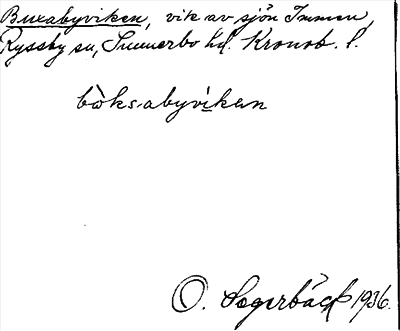 Buxabyviken, vik av sjön Immen,
Ryssby sn, Sunnerbo hd. Kronob. l.
bòksabyvìkan
O. Sagerbäck 1936.